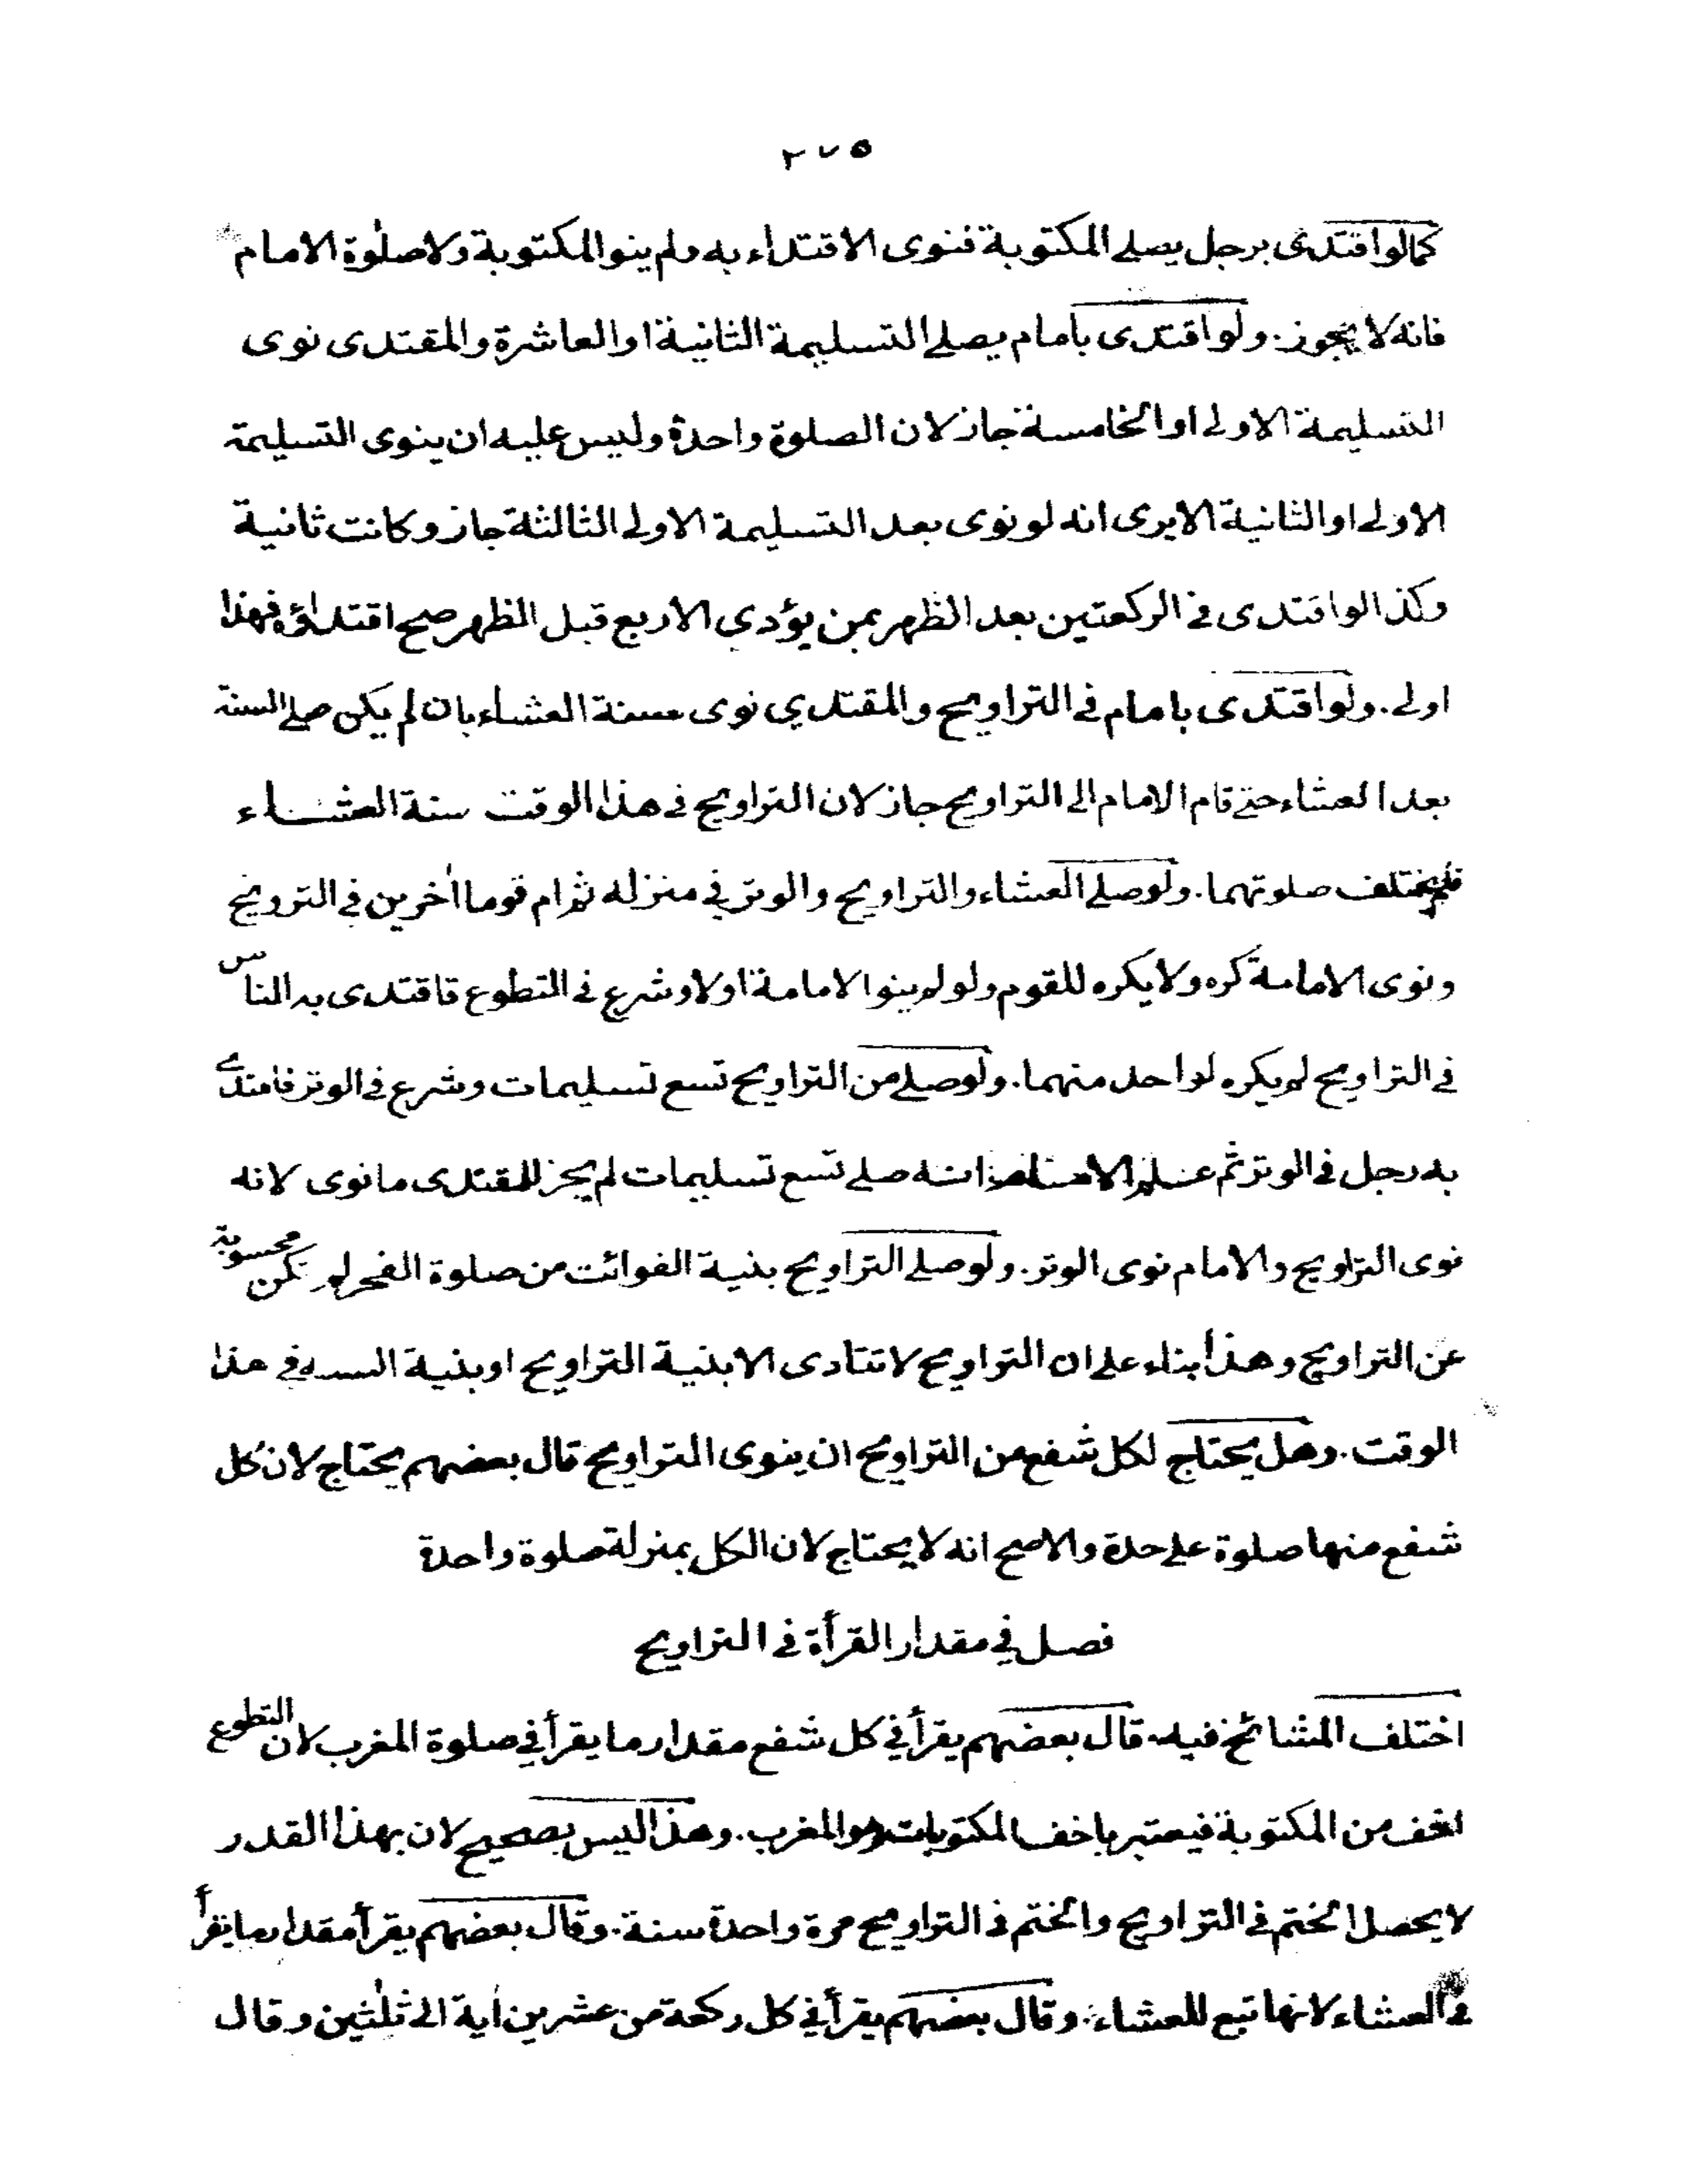 ٢٧٥
كما لو اقتدى برجل يصلے المكتوبة فنوى الاقتداء به ولم ينو المكتوبة ولا صلٰوة الامام
فانه لا يجوز. ولو اقتدى بامام يصلے التسليمة الثانية او العاشرة والمقتدى نوى
التسليمة الاولى او الخامسة جاز لان الصلوة واحدة وليس عليه ان ينوى التسليمة
الاولى او الثانية الا يرى انه لو نوى بعد التسليمة الاولى الثالثة جاز وكانت ثانية
وكذا لو اقتدى فى الركعتين بعد الظهر بمن يؤدي الاربع قبل الظهر صح اقتداؤه فهذا
اولى. ولو اقتدى بامام فى التراويح والمقتدي نوى سنة العشاء بان لم يكن صلے السنة
بعد العشاء حتى قام الامام الى التراويح جاز لان التراويح فى هذا الوقت سنة العشاء
فلم يختلف صلوتهما. ولو صلے العشاء والتراويح والوتر في منزله ثم ام قوما اٰخرين فى الترويح
ونوى الامامة كره ولا يكره للقوم ولو لم ينوا الامامة اولا وشرع فى التطوع فاقتدى به الناس
فى التراويح لم يكره لواحد منهما. ولو صلے من التراويح تسع تسليمات وشرع فى الوتر فاقتدى
به رجل فى الوتر ثم علم الامام انه صلے تسع تسليمات لم يجز للمقتدى ما نوى لانه
نوى التراويح والامام نوى الوتر. ولو صلے التراويح بنية الفوائت من صلوة الفجر لم تكن محسوبة
عن التراويح وهذا بناء على ان التراويح لا تتادى الا بنية التراويح او بنية السنة فى هذا
الوقت. وهل يحتاج لكل شفع من التراويح ان ينوى التراويح قال بعضهم يحتاج لان كل
شفع منها صلوة على حدة والاصح انه لا يحتاج لان الكل بمنزلة صلوة واحدة
فصل في مقدار القرأة فى التراويح
اختلف المشائخ فيه. قال بعضهم يقرأ في كل شفع مقدار ما يقرأ في صلوة المغرب لان التطوع
اخف من المكتوبة فيعتبر باخف المكتوبات وهو المغرب. وهذا ليس بصحيح لان بهذا القدر
لا يحصل الختم فى التراويح والختم فى التراويح مرة واحدة سنة. وقال بعضهم يقرأ مقدار ما يقرأ
فى العشاء لانها تبع للعشاء. وقال بعضهم يقرأ في كل ركعة من عشرين اٰية الى ثلٰثين وقال